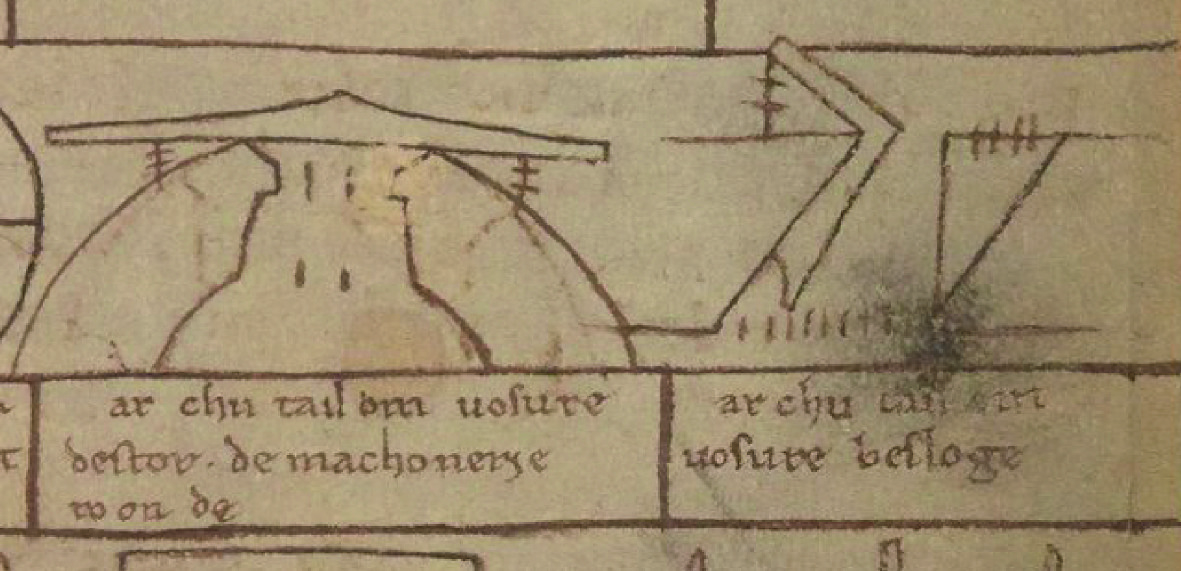 ar chu tail om uosure
destor. de machonerie
roonde
ar chu tail om
uosure besloge